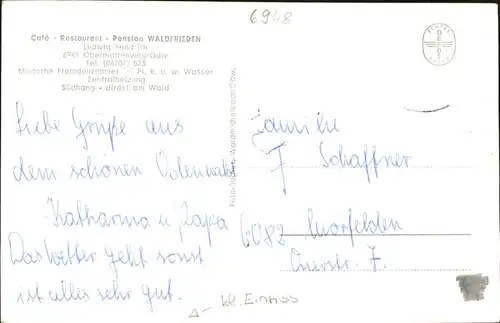 6948
Café - Restaurant - Pension WALDFRIEDEN
Ludwig
6949 Obermattenweg/Odw.
Tel. (06207) 523
Moderne Fremdenzimmer - Fl. k. u. w. Wasser
Zentralheizung
Südhang - direkt am Wald
Liebe Grüße aus
dem schönen Odenwald
Katharina u Papa
Das Wetter geht sonst
ist alles sehr gut.
Familie
J Schaffner
6082 Moerfelden
Querstr. 7.
kl. Einriss